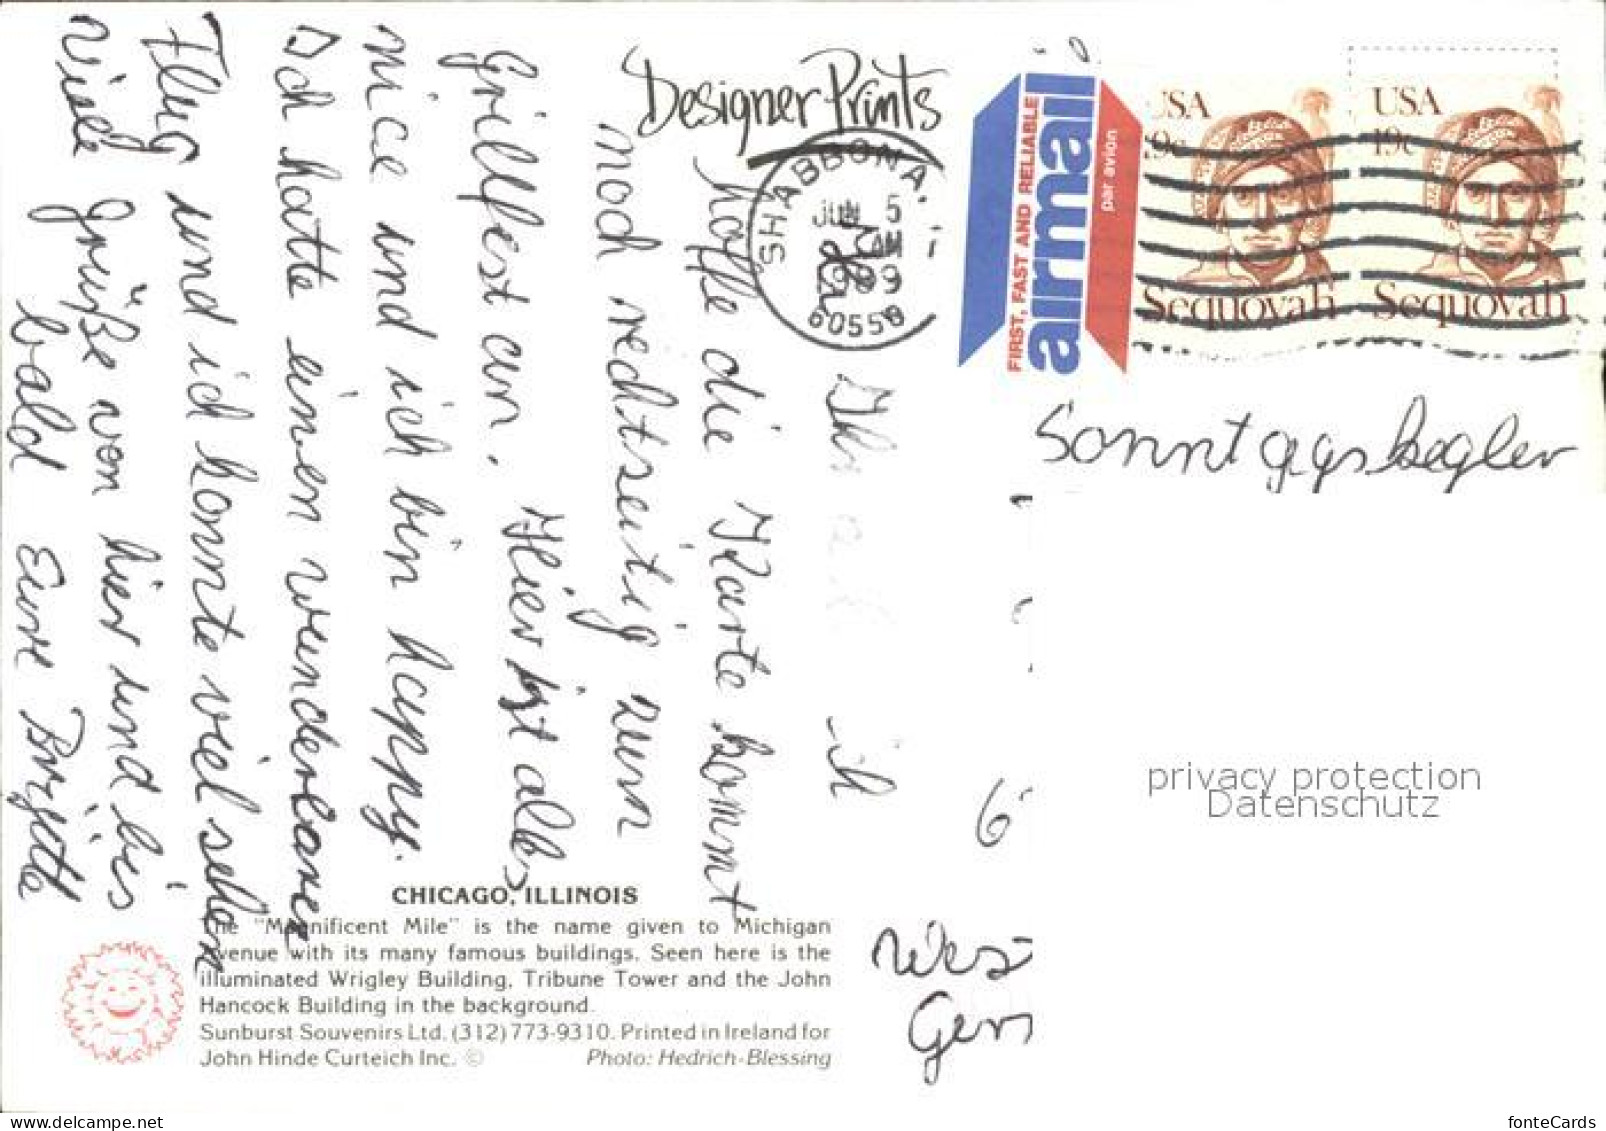 Designer Prints
SHABBONA,
JUN 5
AM
1989
60558
FIRST, FAST AND RELIABLE
airmail
par avion
USA
19c
Sequoyah
USA
19c
Sequoyah
Sonntagskegler
hoffe die Karte kommt
noch rechtseitig zum
Grillfest an. Hier ist alles
nice und ich bin happy.
Ich hatte einen wunderbaren
Flug und ich konnte viel sehen
Viele Grüße von hier und bis
bald Eure Brigitte
6
Wes
Ger
CHICAGO, ILLINOIS
The "Magnificent Mile" is the name given to Michigan
Avenue with its many famous buildings. Seen here is the
illuminated Wrigley Building, Tribune Tower and the John
Hancock Building in the background.
Sunburst Souvenirs Ltd. (312) 773-9310. Printed in Ireland for
John Hinde Curteich Inc. © Photo: Hedrich-Blessing
privacy protection
Datenschutz
www.delcampe.net
fonteCards